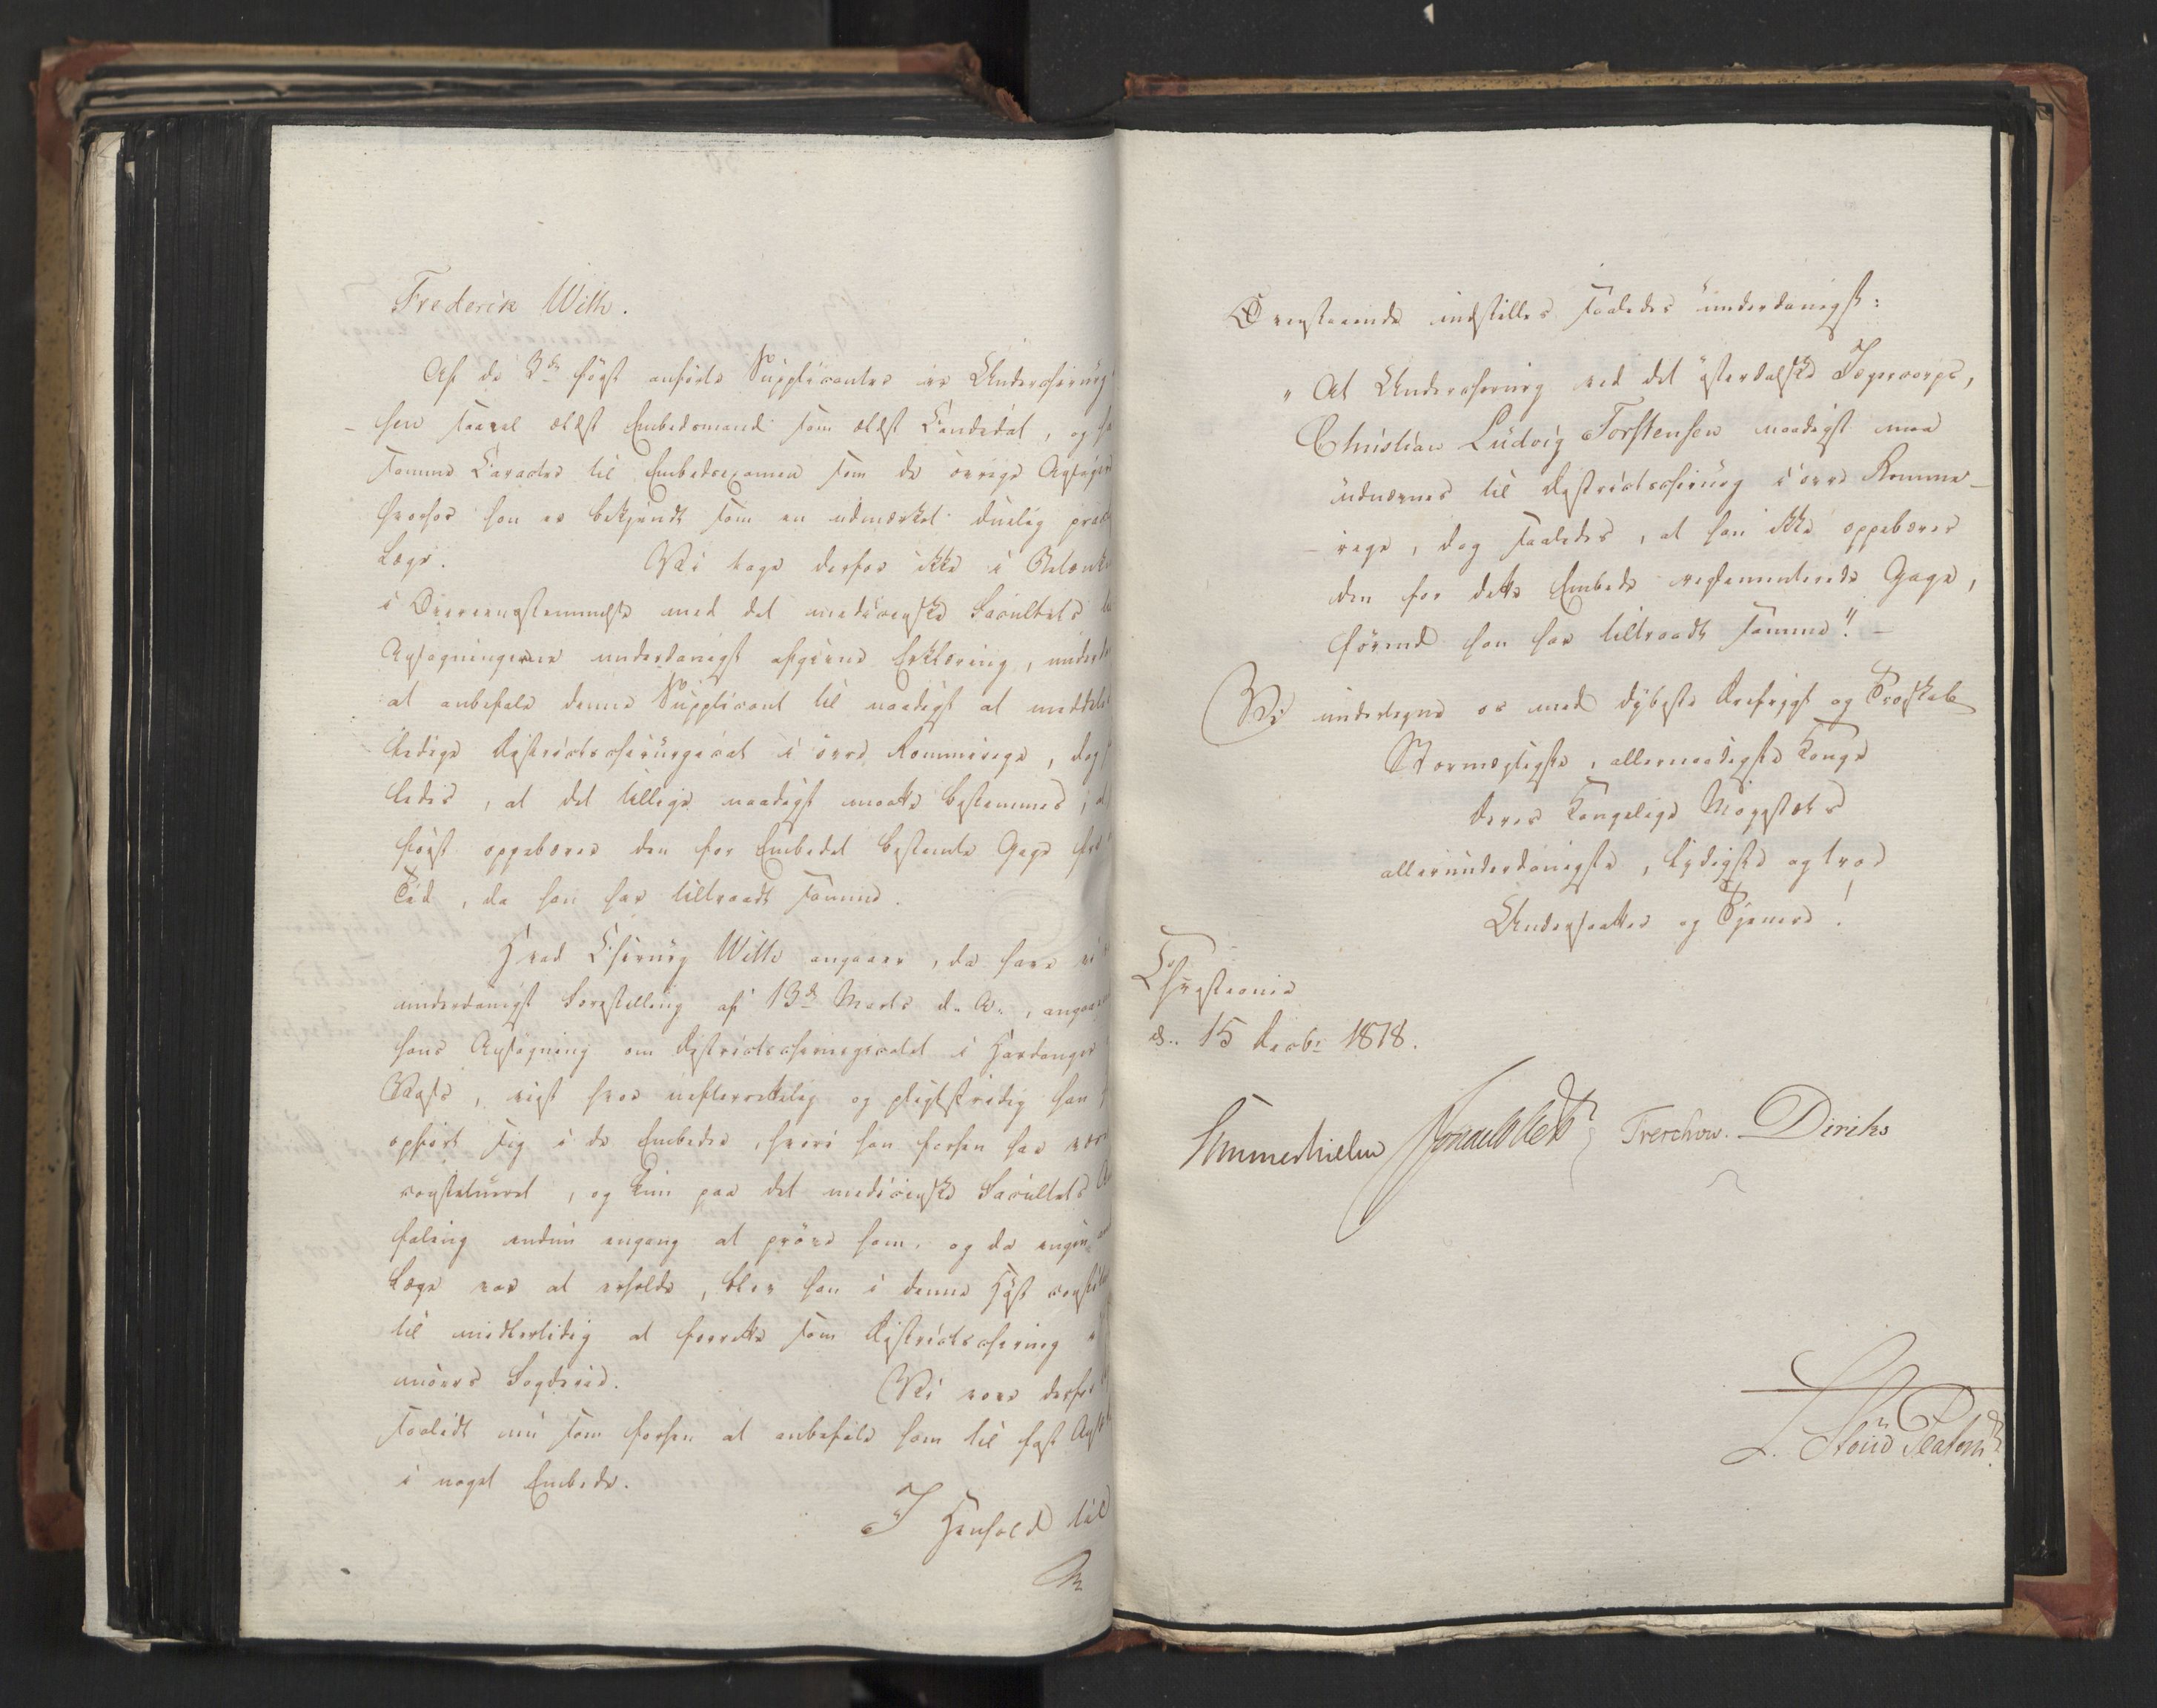 Frederik With.
Af de 3de først anførte Supplicanter er Underchirurg
-sen saavel ældst Embedsmand som ældst Candidat, og ha
samme Caracter til Embedsexamen som de øvrige Ansøgere
hvorhos han er bekjendt som en udmærket duelig pract
Læge. Vi tage derfor ikke i Betænk
i Overeensstemmelse med det medicinske Facultets
Ansøgningerne underdanigst afgivne Erklæring, underd
at anbefale denne Supplicant til naadigst at meddeles
ledige Districtschirurgicat i øvre Rommerige, dog
ledes, at det tillige naadigst maatte bestemmes, at
først oppebærer den for Embedet bestemte Gage fra
Tid, da han har tiltraadt samme.
Hvad Chirurg With angaaer, da have vi
underdanigst Forestilling af 13de Marts d. A., angaa
hans Ansøgning om Districtschirurgicatet i Hardanger
Voss, viist hvor uefterrettelig og pligtstridig han
opført sig i de Embeder, hvori han forhen har vær
constitueret, og kun paa det medicinske Facultets An
faling endnu engang at prøve ham, og da ingen
Læge var at erholde, blev han i denne Høst constit
til midlertidig at forrette som Districtschirurg
møers Fogderie. Vi vove derfor
saalidt nu som forhen at anbefale ham til fast Ansæt
i noget Embede.
I Henhold til
Ovenstaaende indstilles saaledes underdanigst:
"At Underchirurg ved det østerdalske Jægercorps,
Christian Ludvig Torstensen naadigst maa
udnævnes til Districtschirurg i øvre Romme-
-rige, dog saaledes, at han ikke oppebærer
den for dette Embede reglementerede Gage,
førend han har tiltraadt samme". -
Vi undertegne os med dybeste Ærefrygt og Troskab
Stormægtigste, allernaadigste Konge
Deres Kongelige Majestæts
allerunderdanigste, lydigste og troe
Undersaatter og Tjenere!
Christiania
d. 15 Decbr 1818.
Sommerhielm Jonas Collett Treschow. Diriks
L. Stoud Platou